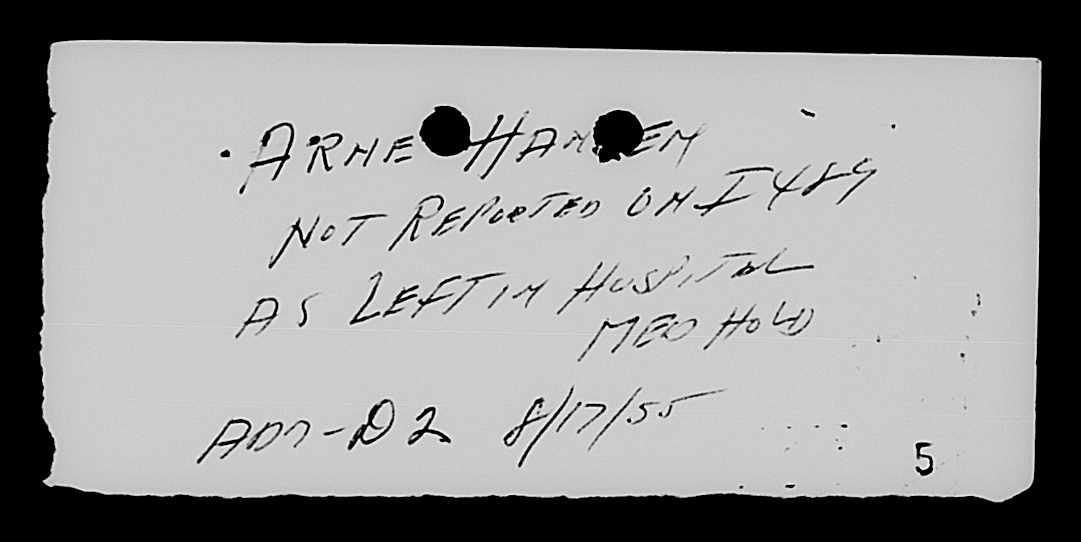 ARNE HANSEN
NOT REPORTED ON I 489
AS LEFT IN HOSPITAL
MED HOLD
AD7-D2 8/17/55
5